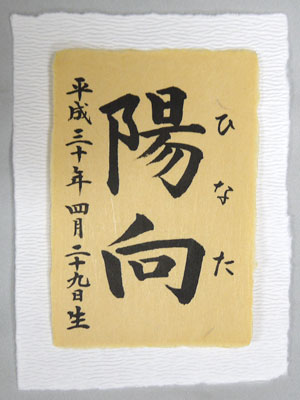 ひなた
陽向
平成三十年四月二十九日生